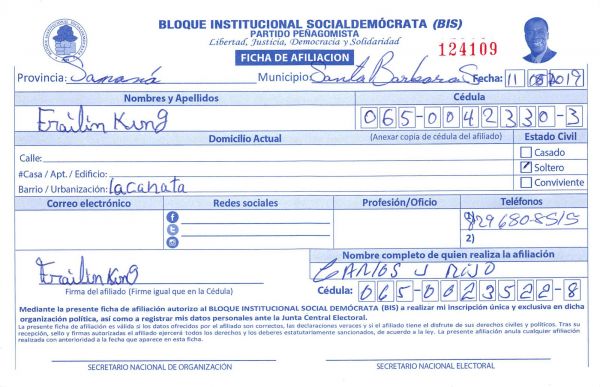 BLOQUE INSTITUCIONAL SOCIALDEMÓCRATA (BIS)
PARTIDO PEÑAGOMISTA
Libertad, Justicia, Democracia y Solidaridad
FICHA DE AFILIACION
124109
Provincia: Samaná Municipio: Santa Barbara S Fecha: 11 08 2019
Nombres y Apellidos Cédula
Frailin King 065-0042330-3
Domicilio Actual (Anexar copia de cédula del afiliado) Estado Civil
Calle: Casado
#Casa / Apt. / Edificio: Soltero
Barrio / Urbanización: La canata Conviviente
Correo electrónico Redes sociales Profesión/Oficio Teléfonos
1) 829 680-8515
2)
Nombre completo de quien realiza la afiliación
Frailin King CARLOS J RIJO
Firma del afiliado (Firme igual que en la Cédula) Cédula: 065-0023522-8
Mediante la presente ficha de afiliación autorizo al BLOQUE INSTITUCIONAL SOCIAL DEMÓCRATA (BIS) a realizar mi inscripción única y exclusiva en dicha
organización política, así como a registrar mis datos personales ante la Junta Central Electoral.
La presente ficha de afiliación es válida si los datos ofrecidos por el afiliado son correctos, las declaraciones veraces y si el afiliado tiene el disfrute de sus derechos civiles y políticos. Tras su
recepción, sello y firmas autorizadas el afiliado ejercerá todos los derechos y los deberes estatutariamente sancionados, de acuerdo a la ley. La presente afiliación anula cualquier afiliación
realizada con anterioridad a la fecha que aparece en esta ficha.
SECRETARIO NACIONAL DE ORGANIZACIÓN SECRETARIO NACIONAL ELECTORAL